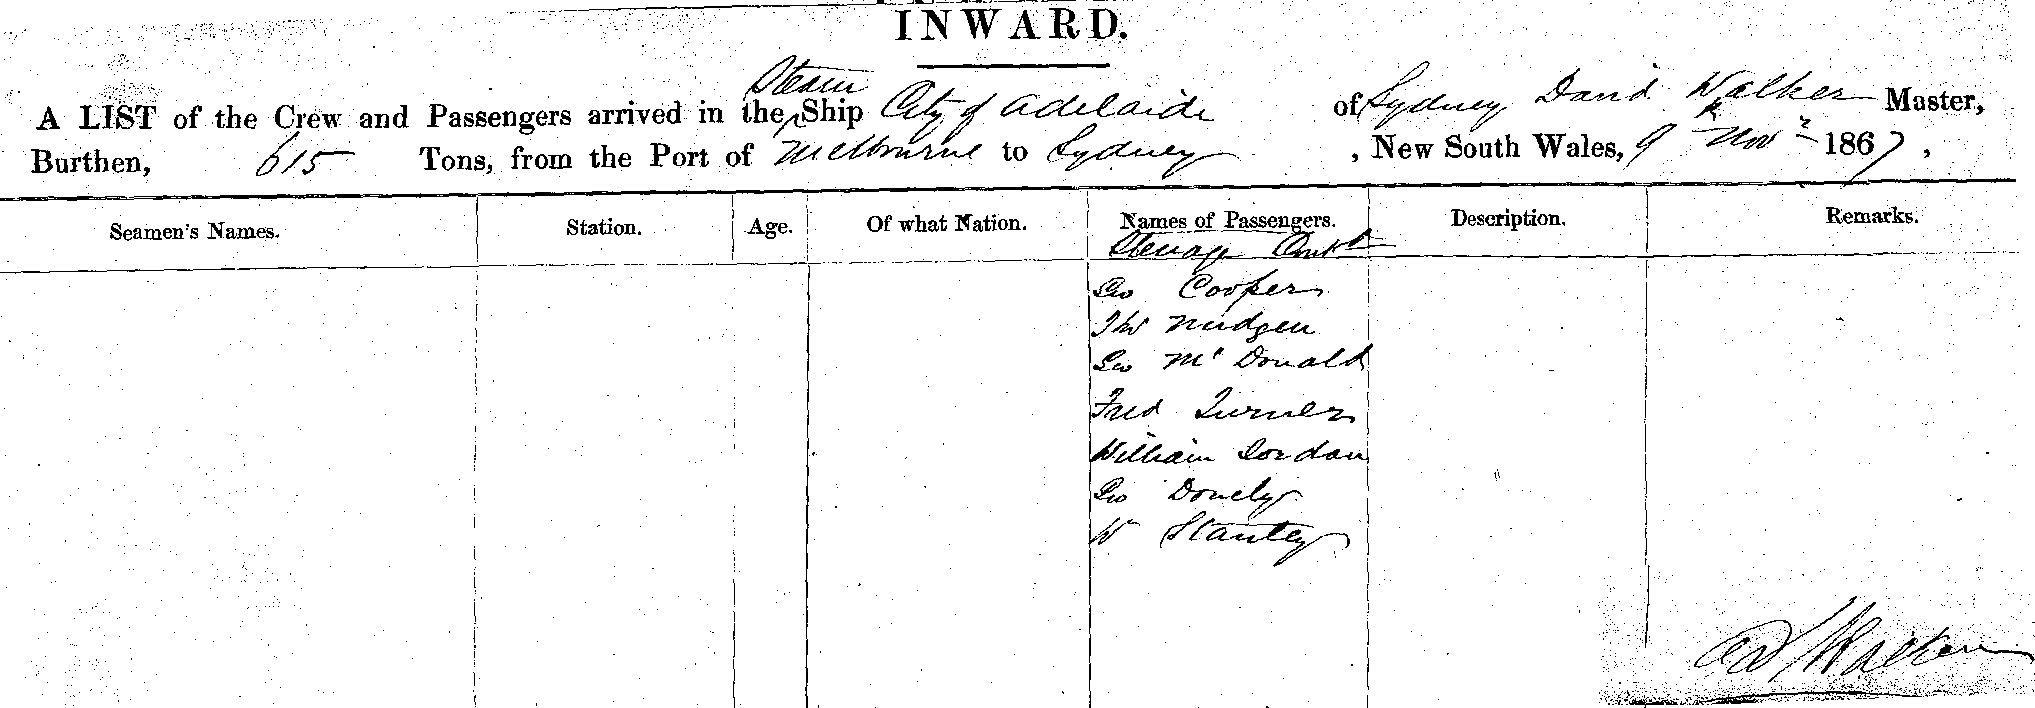 INWARD.
Steam
A LIST of the Crew and Passengers arrived in the Ship City of Adelaide of Sydney David Walker Master,
Burthen, 615 Tons, from the Port of Melbourne to Sydney, New South Wales, 9th Novr 1867,
Seamen's Names. Station. Age. Of what Nation. Names of Passengers. Description. Remarks.
Steerage Contd
Geo Cooper
Thos Mudgen
Geo McDonald
Fred Turner
William Jordan
Geo Donely
W Stanley
Walker